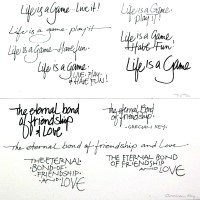 Life is a Game - Live it!
Life is a Game
play it!
Life is a game - play it
Life is a Game - Have fun.
Life is a Game
+ Have Fun
Life is a Game
LIVE · PLAY
+ HAVE FUN!
Life is a Game
The eternal bond
of friendship
& Love!
The eternal bond
of friendship.
The eternal bond of friendship and Love
THE ETERNAL
BOND OF
FRIENDSHIP
AND LOVE
THE ETERNAL BOND
OF FRIENDSHIP
AND LOVE